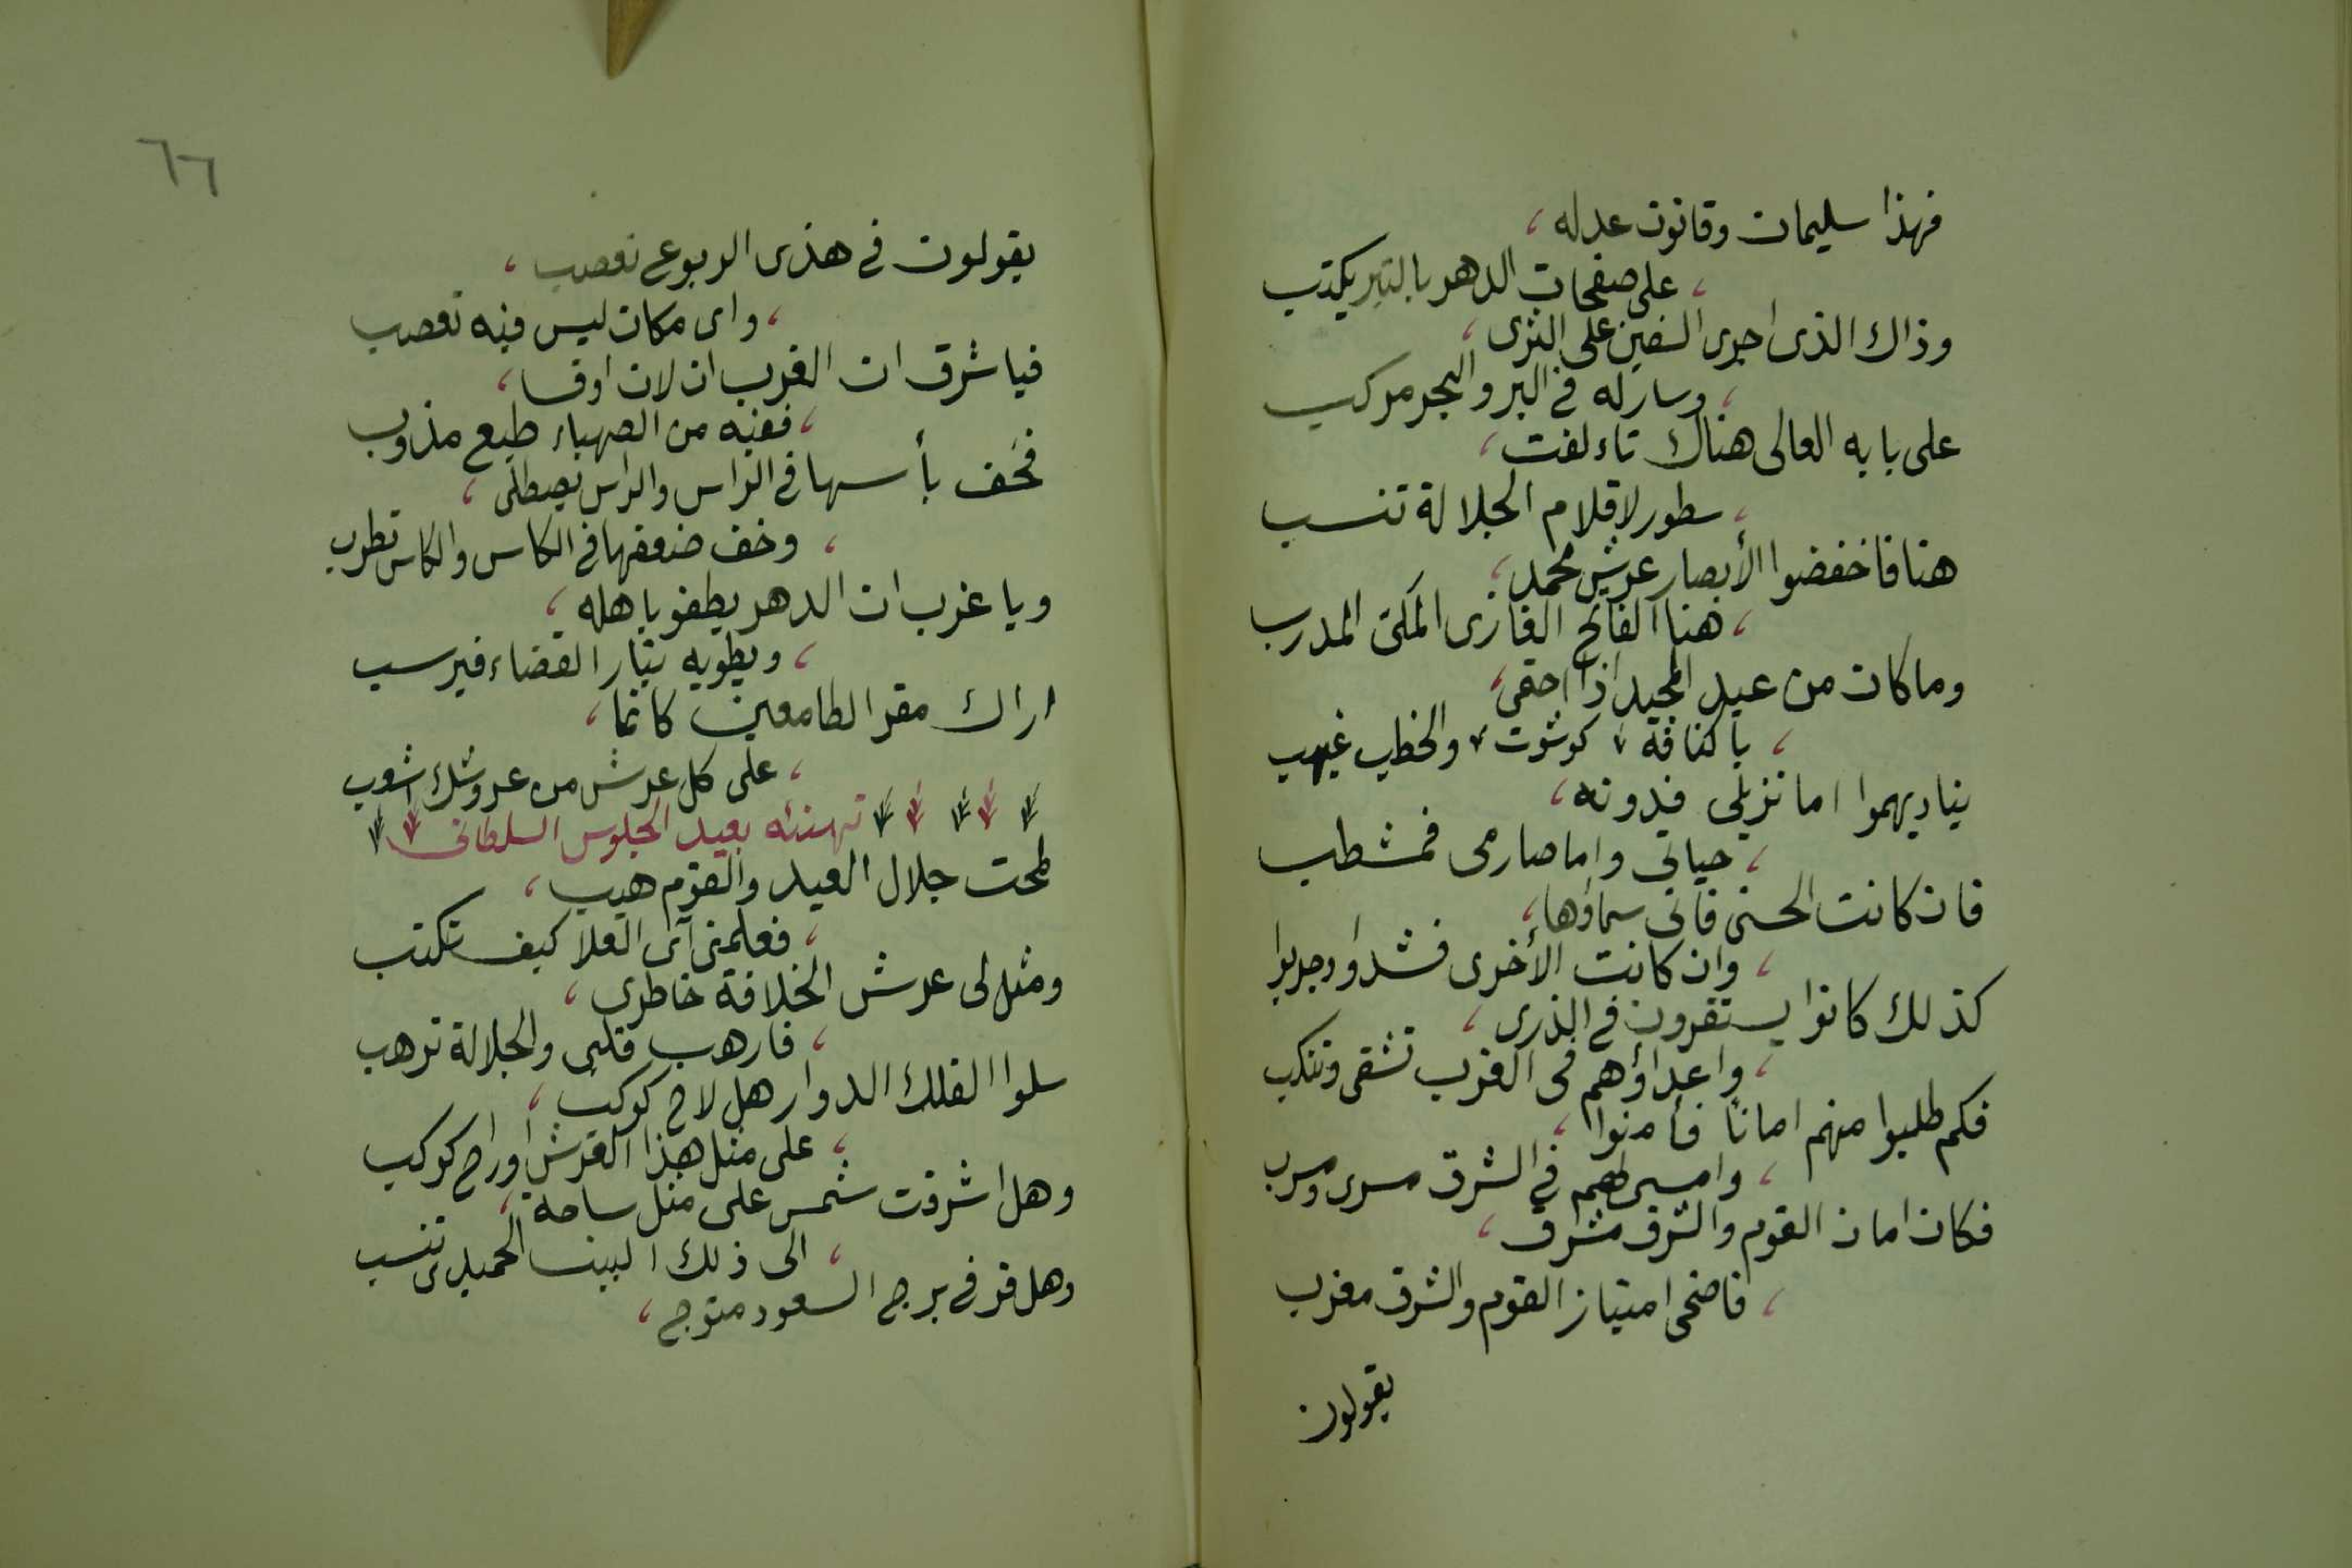 فهذا سليمان وقانون عدله ،
، على صفحات الدهر بالتبر يكتب
وذاك الذى اجرى السفين على الثرى ،
، وسار له في البر والبحر مركب
على بابه العالى هناك تاءلفت ،
، سطور لاقلام الجلالة تنسب
هنا فاخفضوا الأبصار عرش محمد ،
، هنا الفاتح الغازى الكمى المدرب
وما كان من عبد المجيد اذ احتمى ،
، باكنافه كوشوت والخطب غيهب
يناديهموا اما نزيلى فدونه ،
، حياتي واما صارمى فمشطب
فان كانت الحسنى فانى سماؤها ،
، وان كانت الأخرى فشدوا وجربوا
كذلك كانوا يستقرون في الذرى ،
، واعداؤهم فى الغرب تشقى وتنكب
فكم طلبوا منهم امانًا فأمنوا ،
، وامسى لهم في الشرق مسرى ومسرب
فكان امان القوم والشرق مشرق ،
، فاضحى امتياز القوم والشرق مغرب
يقولون
٦٦
يقولون في هذى الربوع تعصب ،
، واى مكان ليس فيه تعصب
فيا شرق ان الغرب ان لان اوقسا ،
، ففيه من الصهباء طبع مذوب
فخف بأسها في الراس والراس يصطلى ،
، وخف ضعفها في الكاس والكاس تطرب
ويا غرب ان الدهر يطفو باهله ،
، ويطويه تيار القضاء فيرسب
اراك مقر الطامعين كانما ،
، على كل عرش من عروشك اشعب
تهنئه بعيد الجلوس السلطانى
لمحت جلال العيد والقوم هيب ،
، فعلمنى آى العلا كيف تكتب
ومثل لى عرش الخلافة خاطرى ،
، فارهب قلبى والجلالة ترهب
سلوا الفلك الدوار هل لاح كوكب ،
، على مثل هذا العرش اوراح كوكب
وهل اشرقت شمس على مثل ساحة ،
، الى ذلك البيت الحميدى تنسب
وهل قر في برج السعود متوج ،